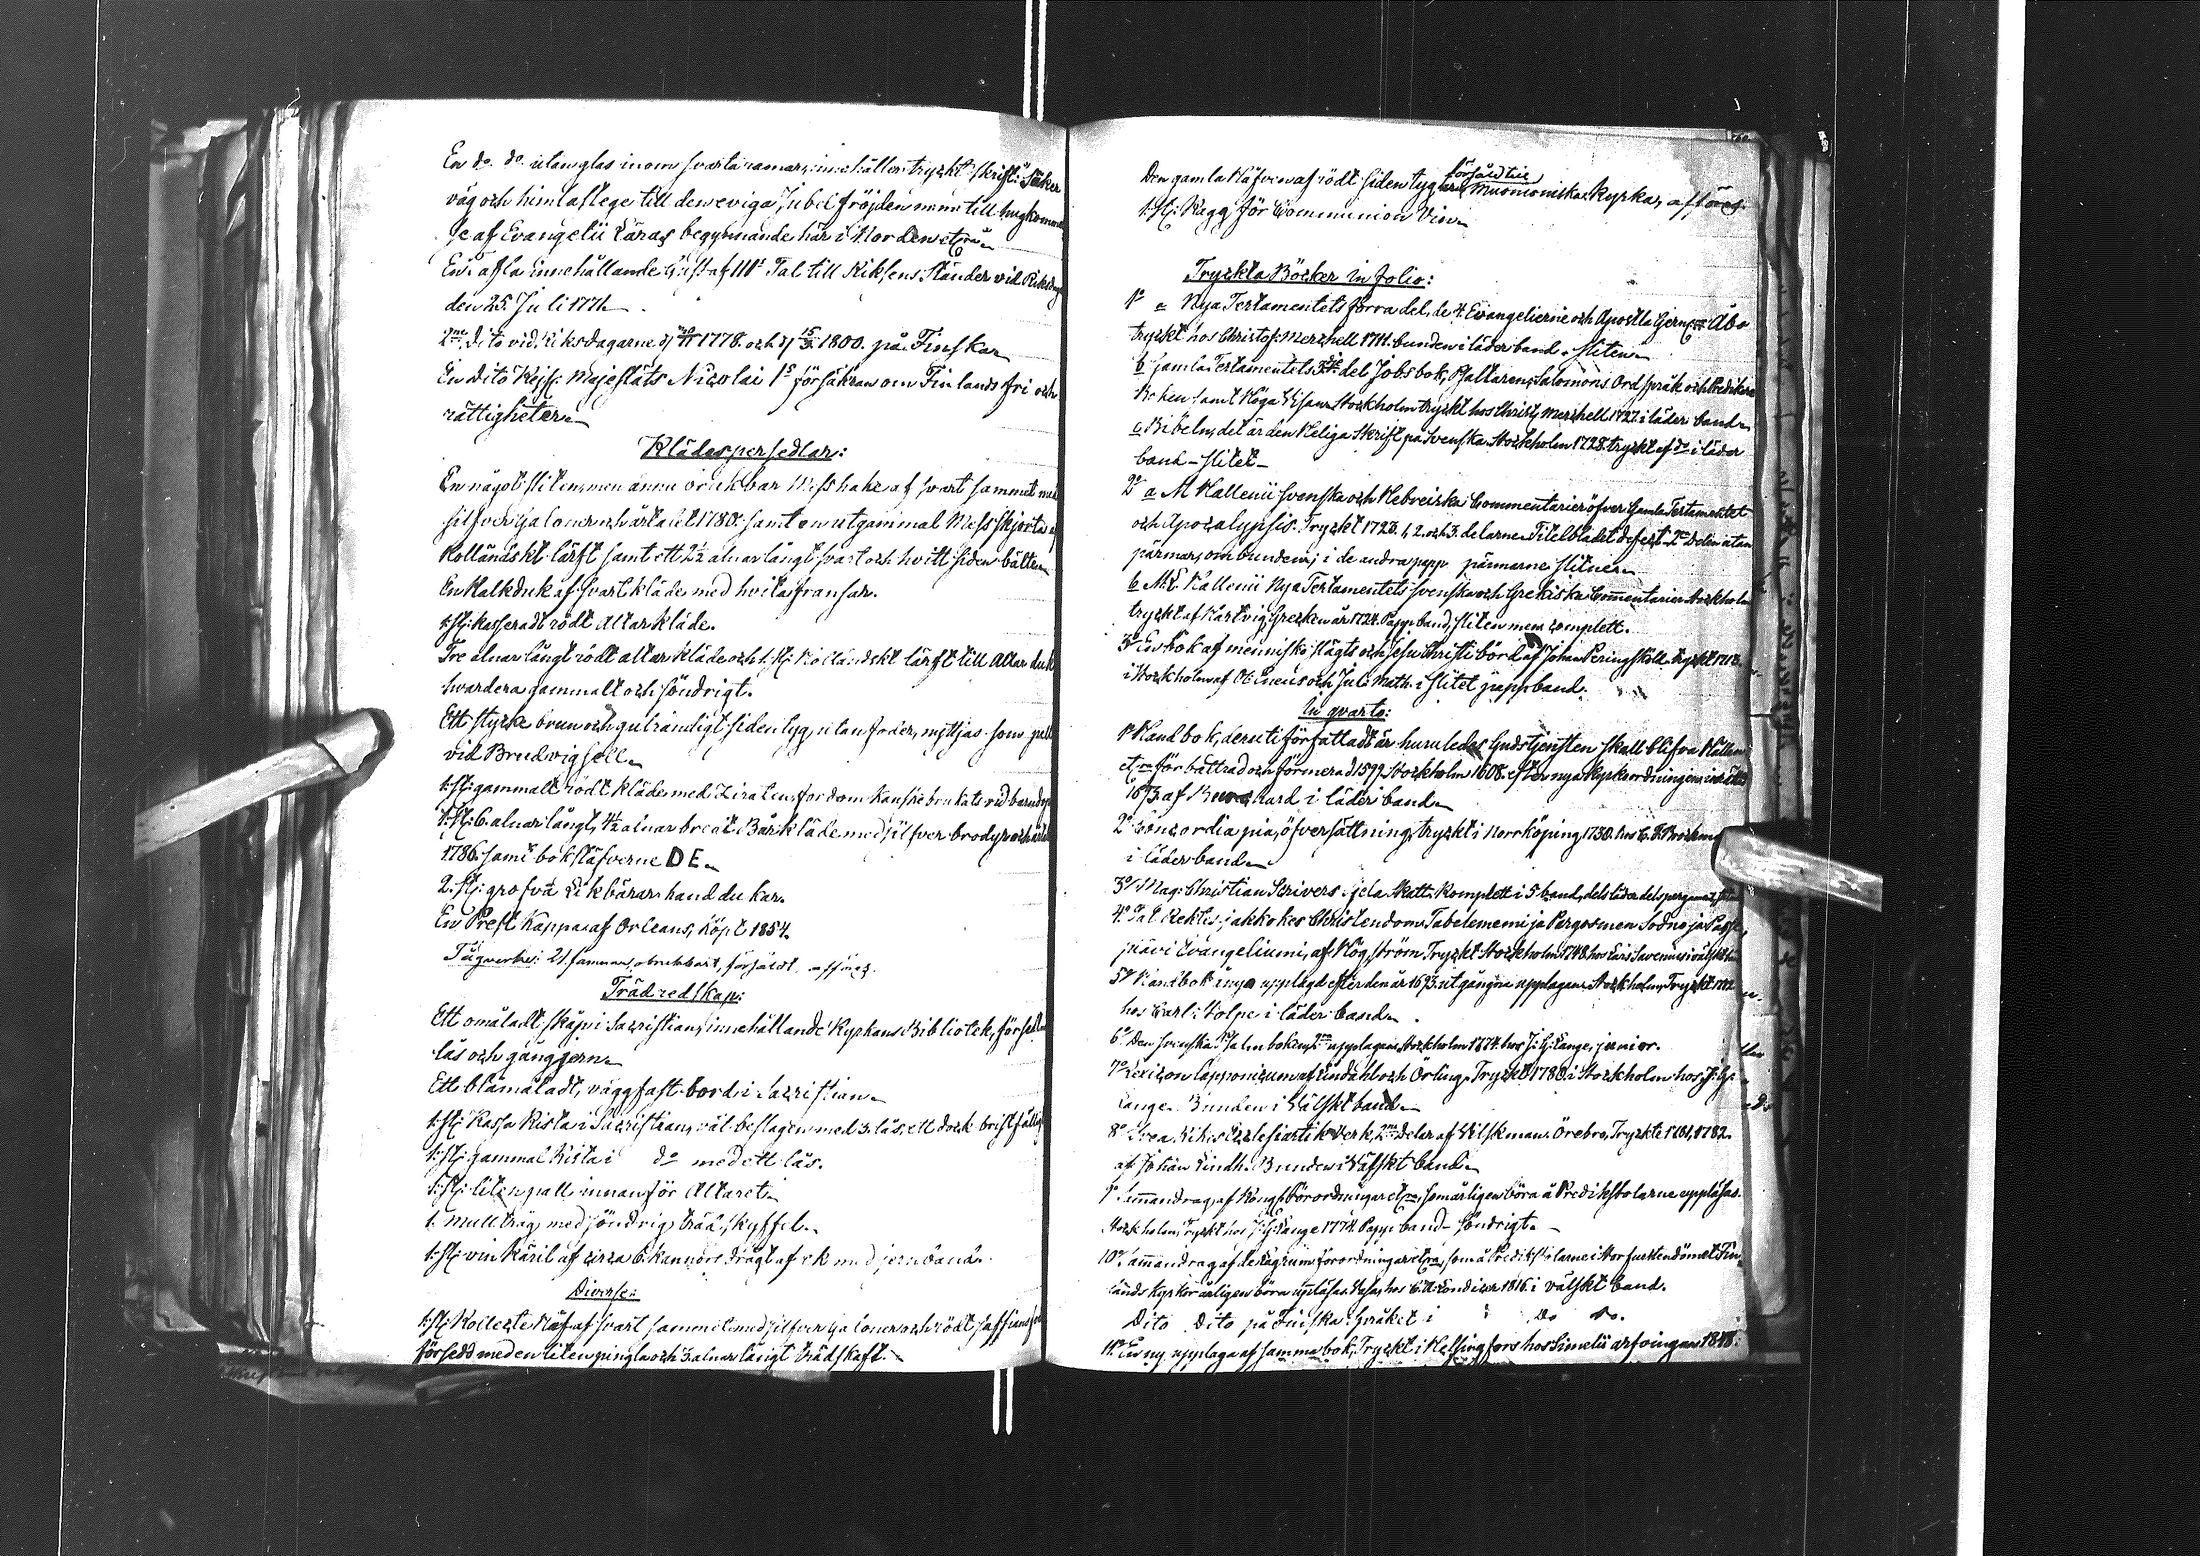 En do. do. utan glas inom svarta ramar, innehåller tryckt skrift: Säker
väg och himlastege till den eviga Jubel fröjden m:m: till hugkomman
se af Evangelii Läras begynnande här i Norden etc.
En tafla innehållande Gustaf IIIs Tal till Riksens Ständer vid Riksdag
den 25 Juli 1771
2ne Dito vid Riksdagarne 1778 och 15/3 1800. på Finska
En Dito Kejs. Majestäts Nicolai 1s försäkran om Finlands fri och
rättigheter
Klädespersedlar:
En något sliten, men ännu brukbar Messhake af svart sammet med
silfver galoner och årtalet 1780. samt en utgammal Messskjorta af
Holländskt lärft samt ett 2½ alnar långt svart och hvitt siden bälte
En Kalkduk af svart kläde med hvita fransar.
1. st: kasseradt rödt Altarkläde.
Tre alnar långt rödt altarkläde och 1. st: Holländskt lärft till Altarduk
hvardera gammalt och söndrigt.
Ett stycke brun och gulrandigt siden tyg, utan foder, nyttjas som pall
vid Brudvigsell
1. st: gammalt rödt kläde med Ziraten, fordom kanske brukats vid barndop
1. st: 6. alnar långt, 4½ alnar bredt Bårkläde med silfver brodyr och årtal
1786. samt bokstäfverne DE.
2. st: grofva Likbärar handdukar.
En Prest Kappa af Orleans, köpt 1854.
Tågverke: 21. famnar, obrukbart, försåldt. afföres.
Trädredskap:
Ett omåladt skåp i Sacristian, innehållande Kyrkans Bibliotek, försedt
lås och gångjern
Ett blåmåladt, väggfast bord i Sacristian
1. st: Kassa Kista i Sacristian, väl beslagen med 3. lås, ett dock bristfällig
1. st: gammal Kista i do med ett lås.
1. st: liten pall innanför Altaret
1. mulltråg med söndrig träskyffel.
1. st: vinkäril af circa 6 kannors drägt af ek med jernband.
Diverse:
1. st: Kollecte Håf af svart sammet med silfver galoner och rödt saffian
försedd med en liten pingla och 3. alnar långt trädskaft.
Den gamla Håfven af rödt siden tyg försåld till Muonioniska Kyrka, afföres.
1. st: Kagg för Communion Vin
Tryckta Böcker in folio:
1o a Nya Testamentets förra del, de 4. Evangelierne och Apostla Gern. Åbo
tryckt hos Christof: Merckell 1711. bunden i läderband. sliten
b Gamla Testamentets 3dje del Jobs bok, Psaltaren, Salomons Ordspråk och Predikare
Boken samt Höga Visan Stockholm tryckt hos Christ: Merckell 1727. i läder band
c Bibeln, det är den Heliga Skrift på Svenska. Stockholm 1728. tryckt af do i läder
band – slitet –
2o a M Kallenii Svenska och Hebreiska Commentarier öfver Gamla Testamentet
och Apocalypsis. Tryckt 1723. 1, 2. och 3. delarne. Titelbladet defect. 1a Delen utan
pärmar, om bunden; i de andra papp pärmarne slitne
b M.E. Kallenii Nya Testamentets Svenska och Grekiska Commentarier Stockholm
tryckt af Hartvig Grecken år 1724. Pappband, sliten men complett.
3o En bok af menniskoslägts och Jesu Christi börd af Johan Peringsköld. tryckt 1713.
i Stockholm af Ol: Eneus och Jul: Math: i slitet pappband.
In qvarto:
1o Handbok, deruti författadt är huruledes Gudstjensten skall blifva hållen
etc. förbättrad och förmerad 1599. Stockholm 1608. efter nya Kyrkoordningen
1673. af Keus hard i läderband
2o Concordia pia, öfversättning, tryckt i Norrköping 1730. hos C.F. Brockmo
i läderband
3o Mag: Christian Scrivers Sjela Skatt. Komplett i 5 band, dels läder dels pergament,
4o Tat Rektes jakkokes Christendom Tabelememi ja Pergosmen Sodno ja Passe
peiwi Evangeliumi, af Högström Tryckt Stockholm 1748. hos Lars Salvius i välskt
5o Handbok å nyo upplagd efter den år 1693. utgångne upplagan Stockholm, Tryckt 1782
hos Carl Stolpe i läder band
6o Den Svenska Psalmboken 2ne upplagan, Stockholm 1774. hos J: G: Lange, junior.
7o Lexicon Lapponicum af Lindahl och Örling. Tryckt 1780. i Stockholm hos J: G:
Lange. Bunden i Välskt band
8o Svea Rikes Ecclesiastik Verk, 2ne Delar af Wilskman. Örebro, Tryckte 1781, 1782.
af Johan Lindh. Bunden i Välskt band
9o Sammandrag, af Kongl. Förordningar etc. som årligen böra å Predikstolarne uppläsas.
Stockholm, Tryckt hos J: G: Lange 1774. Pappband – Söndrigt –
10o Sammandrag af de Religions förordningar etc. som å Predikstolarne i Storfurstendömet Fin
lands Kyrkor årligen böra uppläsas. Vasa, hos C.A. Londicer 1816. i välskt band.
Dito Dito på Finska språket i do do.
11o En ny upplaga af samma bok, Tryckt i Helsingfors hos Simelii arfvingar 1848.